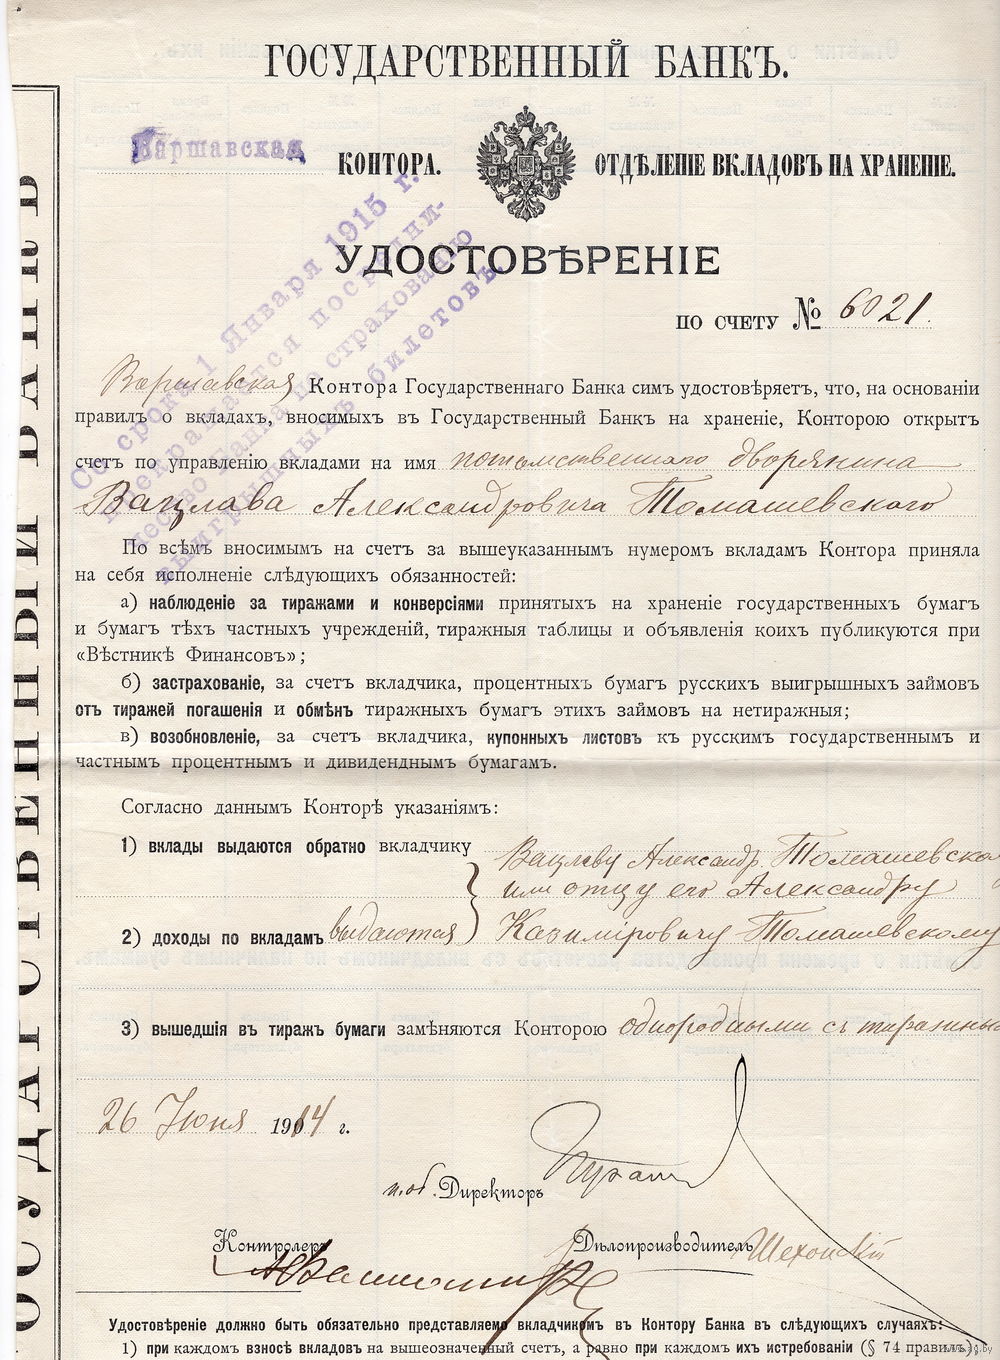 ГОСУДАРСТВЕННЫЙ БАНКЪ.
Варшавская КОНТОРА. ОТДѢЛЕНІЕ ВКЛАДОВЪ НА ХРАНЕНІЕ.
УДОСТОВѢРЕНІЕ
ПО СЧЕТУ № 6021.
Со срока 1 Января 1915 г.
прекращается посредни-
чество Банка по страхованію
выигрышныхъ билетовъ.
Варшавская Контора Государственнаго Банка симъ удостовѣряетъ, что, на основаніи
правилъ о вкладахъ, вносимыхъ въ Государственный Банкъ на храненіе, Конторою открытъ
счетъ по управленію вкладами на имя потомственнаго дворянина
Вацлава Александровича Томашевскаго
По всѣмъ вносимымъ на счетъ за вышеуказаннымъ нумеромъ вкладамъ Контора приняла
на себя исполненіе слѣдующихъ обязанностей:
а) наблюденіе за тиражами и конверсіями принятыхъ на храненіе государственныхъ бумагъ
и бумагъ тѣхъ частныхъ учрежденій, тиражныя таблицы и объявленія коихъ публикуются при
«Вѣстникѣ Финансовъ»;
б) застрахованіе, за счетъ вкладчика, процентныхъ бумагъ русскихъ выигрышныхъ займовъ
отъ тиражей погашенія и обмѣнъ тиражныхъ бумагъ этихъ займовъ на нетиражныя;
в) возобновленіе, за счетъ вкладчика, купонныхъ листовъ къ русскимъ государственнымъ и
частнымъ процентнымъ и дивиденднымъ бумагамъ.
Согласно даннымъ Конторѣ указаніямъ:
1) вклады выдаются обратно вкладчику Вацлаву Александр. Томашевско
или отцу его Александру
2) доходы по вкладамъ выдаются Казиміровичу Томашевскому
3) вышедшія въ тиражъ бумаги замѣняются Конторою однородными съ тиражны
26 Іюня 1914 г.
и.об. Директоръ
Контролеръ Дѣлопроизводитель Шеховскій
Удостовѣреніе должно быть обязательно представляемо вкладчикомъ въ Контору Банка въ слѣдующихъ случаяхъ:
1) при каждомъ взносѣ вкладовъ на вышеозначенный счетъ, а равно при каждомъ ихъ истребованіи (§ 74 правилъ);
ГОСУДАРСТВЕННЫЙ БАНКЪ